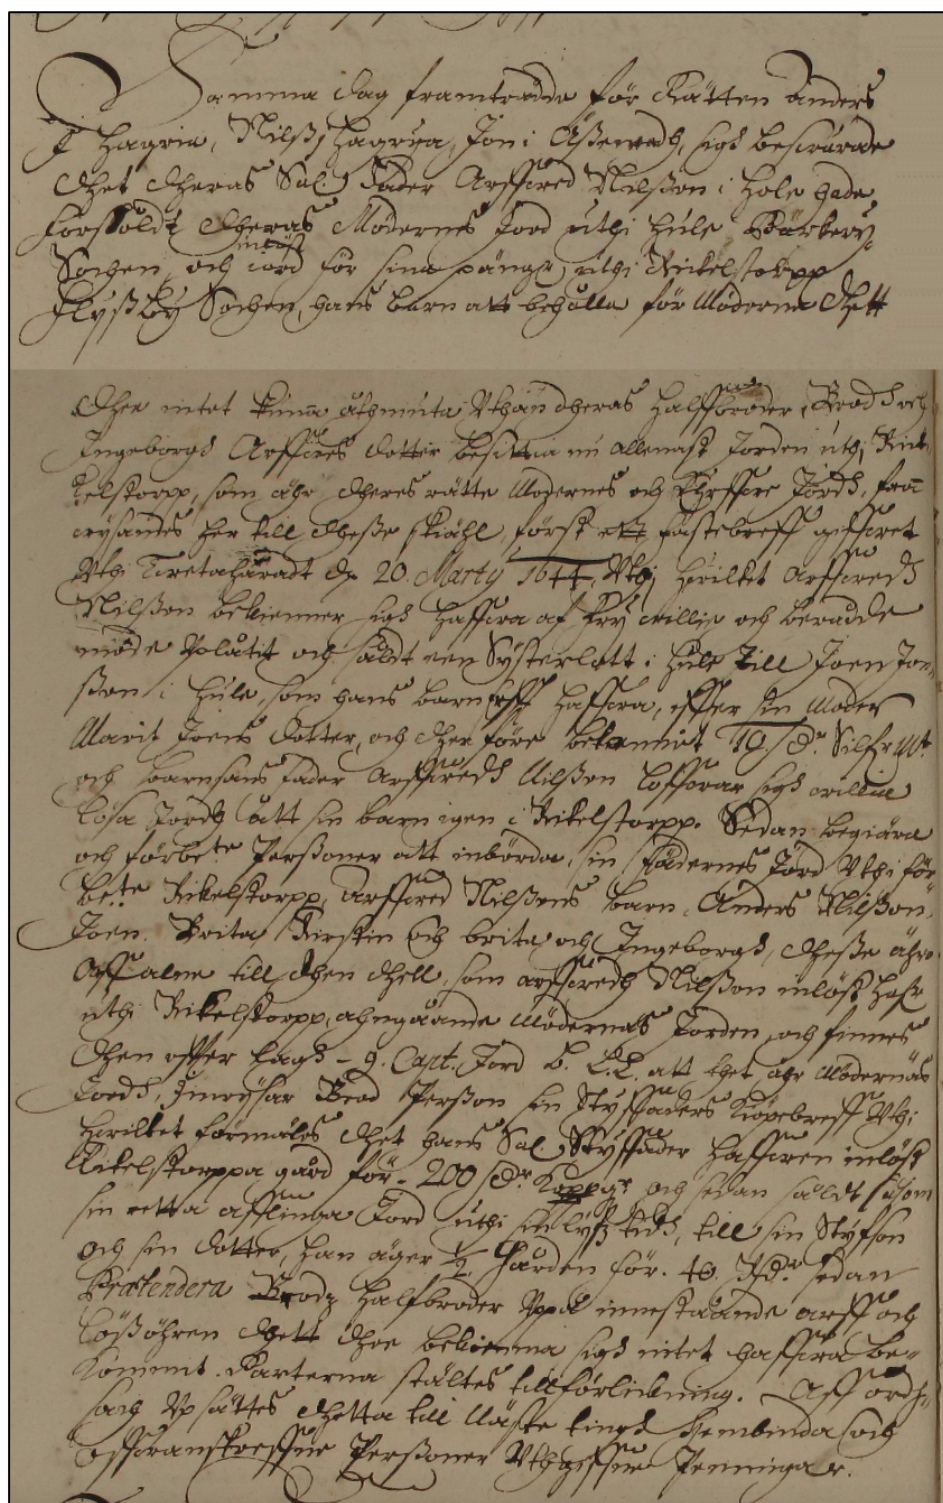 Samma dag framträdde för Rätten Anders
I Hagria, Nilß i Hagria, Jon i Åßeredh, sigh beswärade
dhet dheras Sal. Fader Arffwed Nilßon i Hole hade
forsoldt dheras Mödernes Jord uthi Hule Bärkery
inlöst
Sochen, och iord för sine pänger, uthi Rickelstorpp
Flyßby Sochen, hans barn att behålla för Möderne dhett
dhee intet kunna åthniuta Uthan dheras halffbroder, Brodh och
Ingeborgh Arffwes dotter besittia nu allenast Jorden uthi Rick
kelstorpp, som ähr dheres rätte Modernes och Jordh, fram
wysandes her till dheße skiähl, först ett fastebreff giffwet
Uthi häradt d. 20. Marty 1644, Uthi hwilket Arffwedh
Nilßon bekienner sigh haffwa af fry willie och berådde
mode Uplåtit och såldt een Systerlott i Hule till Joen Jon
ßon i Hule, som hans barn haffwa, effter sin Moder
Marit Joens dotter, och dher före bekommit 10 sdr. Silfr Mt
och barnsens Fader Arffwedh Nilßon loffwar sigh willia
lösa Jordh ått sin barn igen i Rikelstorpp. Sedan begiära
och förbete Perßoner att inbörda, sin fädernes Jord Uthi för
bete Rikelstorpp, Arffwed Nilßons barn, Anders Nilßon,
Joen. Brita Kirstin och brita och Ingeborgh, dheße ähro
Arff till dhen dhell, som arffwedh Nilßon inlöst hafr
uthi Rikelstorpp, ahngåande Mödernäs Jorden, och finnes
dhen effter Lagh - 9. Capt. Jord B. L.L. att thet ähr Mödernäs
Jordh, Inwysar Brod Perßon sin Styffaders Kiöpebreff Uthi
hwilket förmäles dhet hans Sal. Styffader haffwer inlöst
Rikelstorppa gård för - 200 sdr. och sedan såldt såsom
sin retta afflinga Jord uthi sin lyfz tidh, till sin Styfson
och sin dotter, han äger 1/2 gården för. 40. Rdr. sedan
Prætendera Brodz halfbroder Uppå inneståande arff och
lößöhren dhett dhee bekienna sigh intet haffwa be-
kommit. Parterna stältes till förlickning. Aff
sach Up sättes dhetta till Näste tingh hembinda och
Perßoner Uthgiffne Penningar.